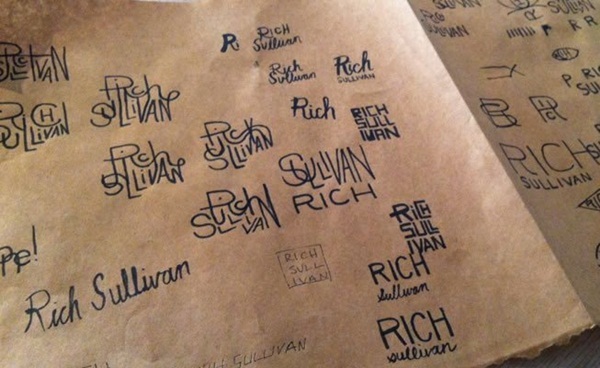 SULLIVAN
R
RICH
Sullivan
R R
Rich
Sullivan
Rich
SULLIVAN
Rich
SULLIVAN
Rich
SULLIVAN
Rich
RICH
SULL
IVAN
Rich
SULLIVAN
Rich
SULLIVAN
SULLIVAN
RICH
RICH
SULLIVAN
Rich
SULLIVAN
RICH
SULL
IVAN
Rich Sullivan
RICH
SULL
IVAN
RICH
Sullivan
RICH
Sullivan
SULLIVAN